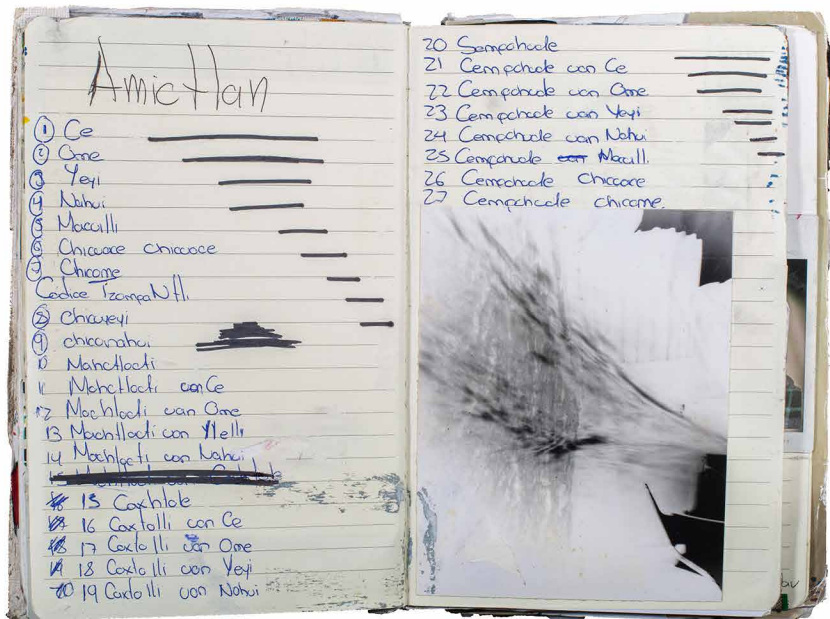 Amictlan
1 Ce
2 Ome
3 Yeyi
4 Nahui
5 Macuilli
6 Chicuace chicuoce
7 Chicome
Codice TzompaNtli
8 chicuyeyi
9 chicunahui
10 Mahctlacti
11 Mahctlacti van Ce
12 Machlacti van Ome
13 Machtlacti van Yielli
14 Machlacti van Nahui
15 Caxhtote
16 Caxtolli van Ce
17 Caxtolli van Ome
18 Caxtolli van Yeyi
19 Caxtolli van Nahui
20 Sempohuale
21 Cempohuale van Ce
22 Cempohuale van Ome
23 Cempohuale van Yeyi
24 Cempohuale van Nahui
25 Cempohuale Macuili
26 Cempohuale Chicuace
27 Cempohuale chicome.